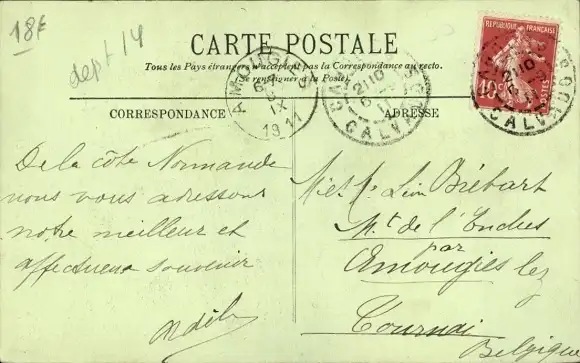 18f
dept 14
CARTE POSTALE
Tous les Pays étrangers n'acceptent pas la Correspondance au recto.
(Se renseigner à la Poste).
CORRESPONDANCE
ADRESSE
AMOUGIES
IX
1911
CALVADOS
REPUBLIQUE FRANÇAISE
10c
POSTES
CALVADOS
De la côte Normande
nous vous adressons
notre meilleur et
affectueux souvenir
M et Me Léon Biébart
Mt de l'Enclus
par
Amougies lez
Tournai
Belgique